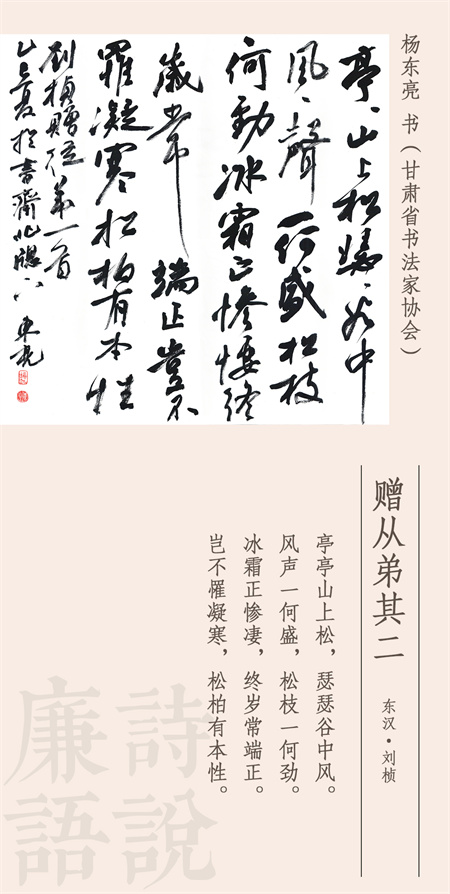 杨东亮 书（甘肃省书法家协会）
亭〻山上松瑟〻谷中
風〻聲一何盛松枝
何勁冰霜正惨悽终
歲常端正豈不
罹凝寒松柏有本性
刘桢赠從弟一首
乙巳夏於書齋北牖下 东亮
赠从弟其二
东汉·刘桢
亭亭山上松，瑟瑟谷中风。
风声一何盛，松枝一何劲。
冰霜正惨凄，终岁常端正。
岂不罹凝寒，松柏有本性。
詩說
廉語